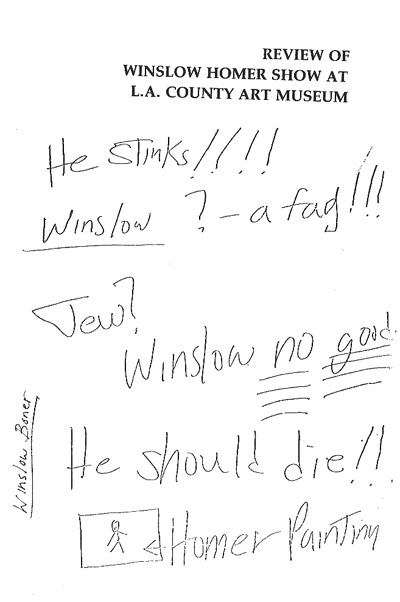 REVIEW OF
WINSLOW HOMER SHOW AT
L.A. COUNTY ART MUSEUM
He Stinks!!!!
Winslow ? – a fag!!!
Jew?
Winslow no good
Winslow Boner
He should die!!
Homer Painting